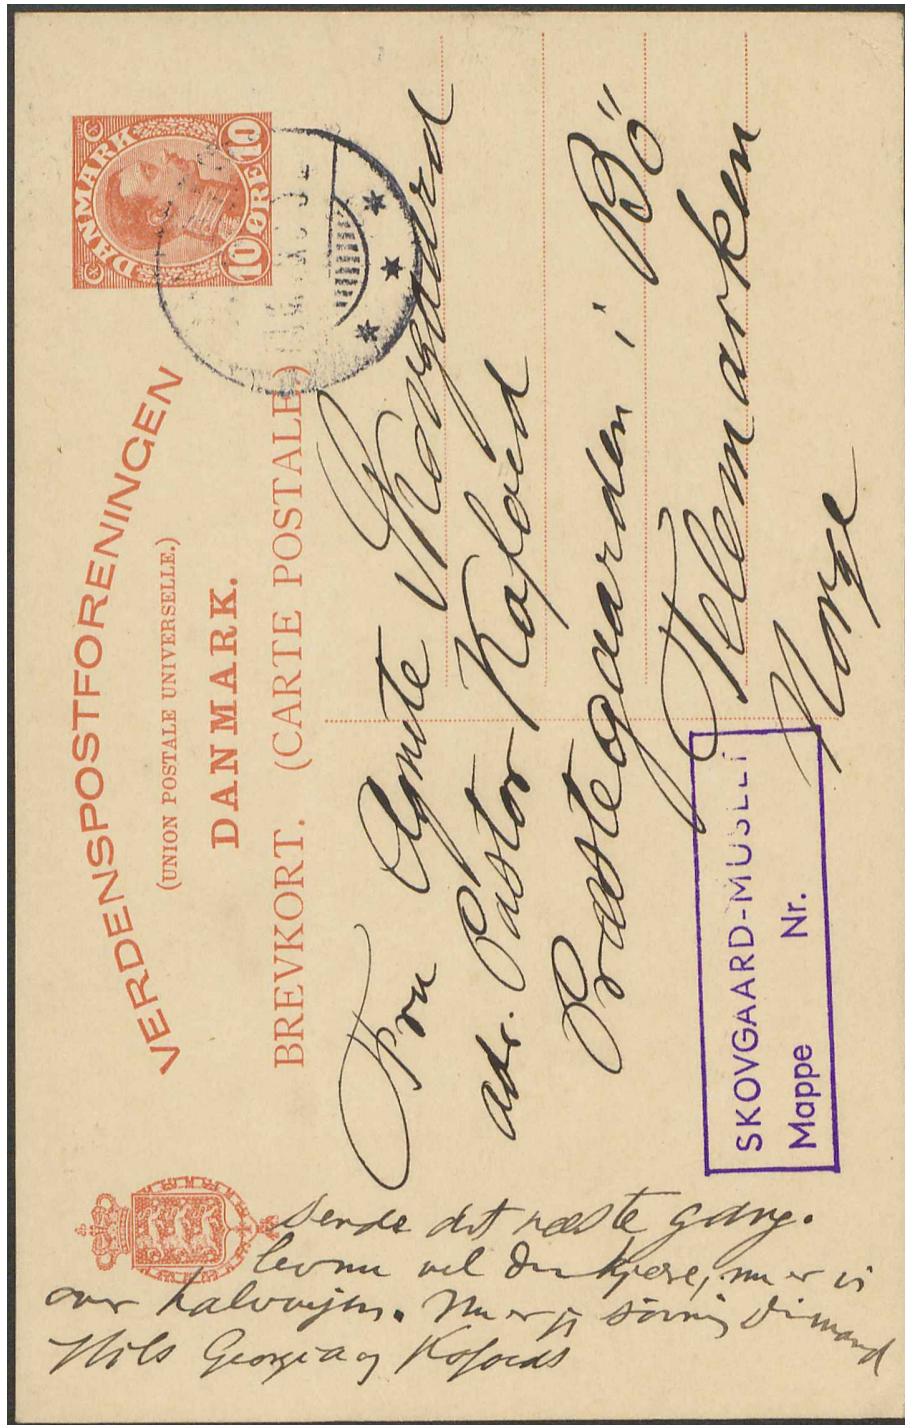 VERDENSPOSTFORENINGEN
(UNION POSTALE UNIVERSELLE.)
DANMARK.
BREVKORT. (CARTE POSTALE.)
DANMARK
10 ØRE 10
Fru Agnete Skovgaard
adr. Pastor Kofoed
Præstegaarden i Bö
Telemarken
Norge
SKOVGAARD-MUSEET
Mappe Nr.
sende det næste gang.
levnu vel du kjære, nu er vi
over halvvejen. Nu er jeg søvnig Din mand
Hils Georgia og Kofoeds